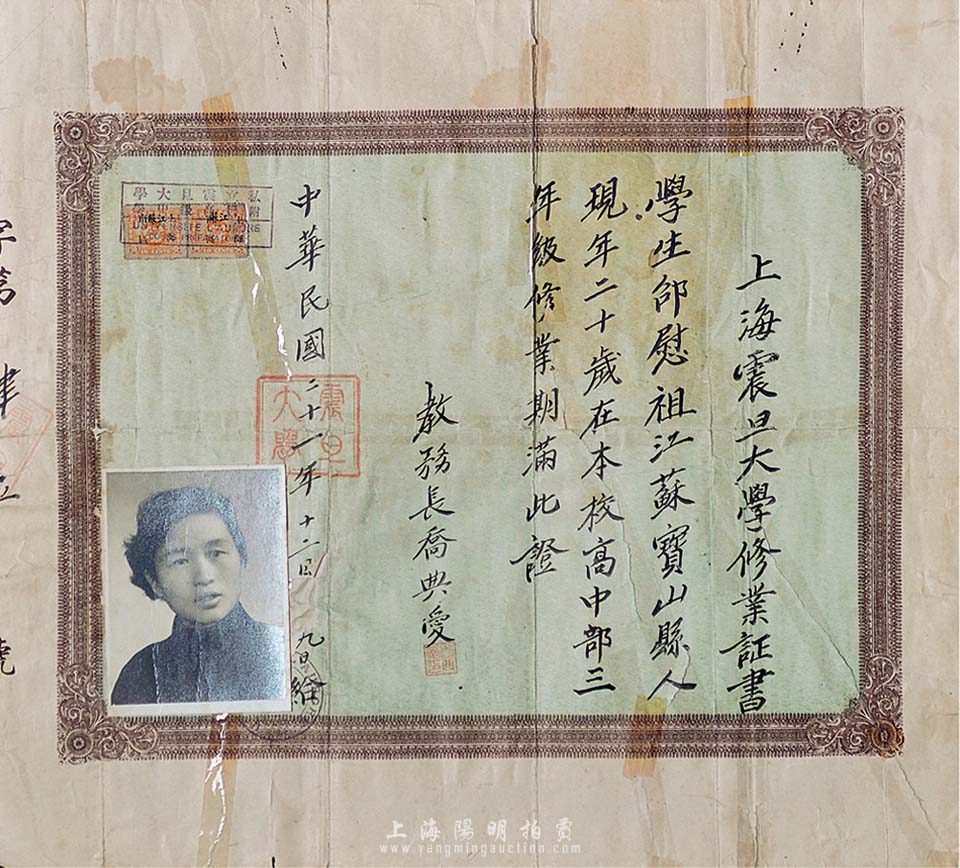 上海震旦大學修業証書
學生邰慰祖江蘇寶山縣人
現年二十歲在本校高中部三
年級修業期滿此證
教務長喬典愛
中華民國二十一年十二月九日給
震旦大學
私立震旦大學
字第
肆
號
上海陽明拍賣
www.yangmingauction.com